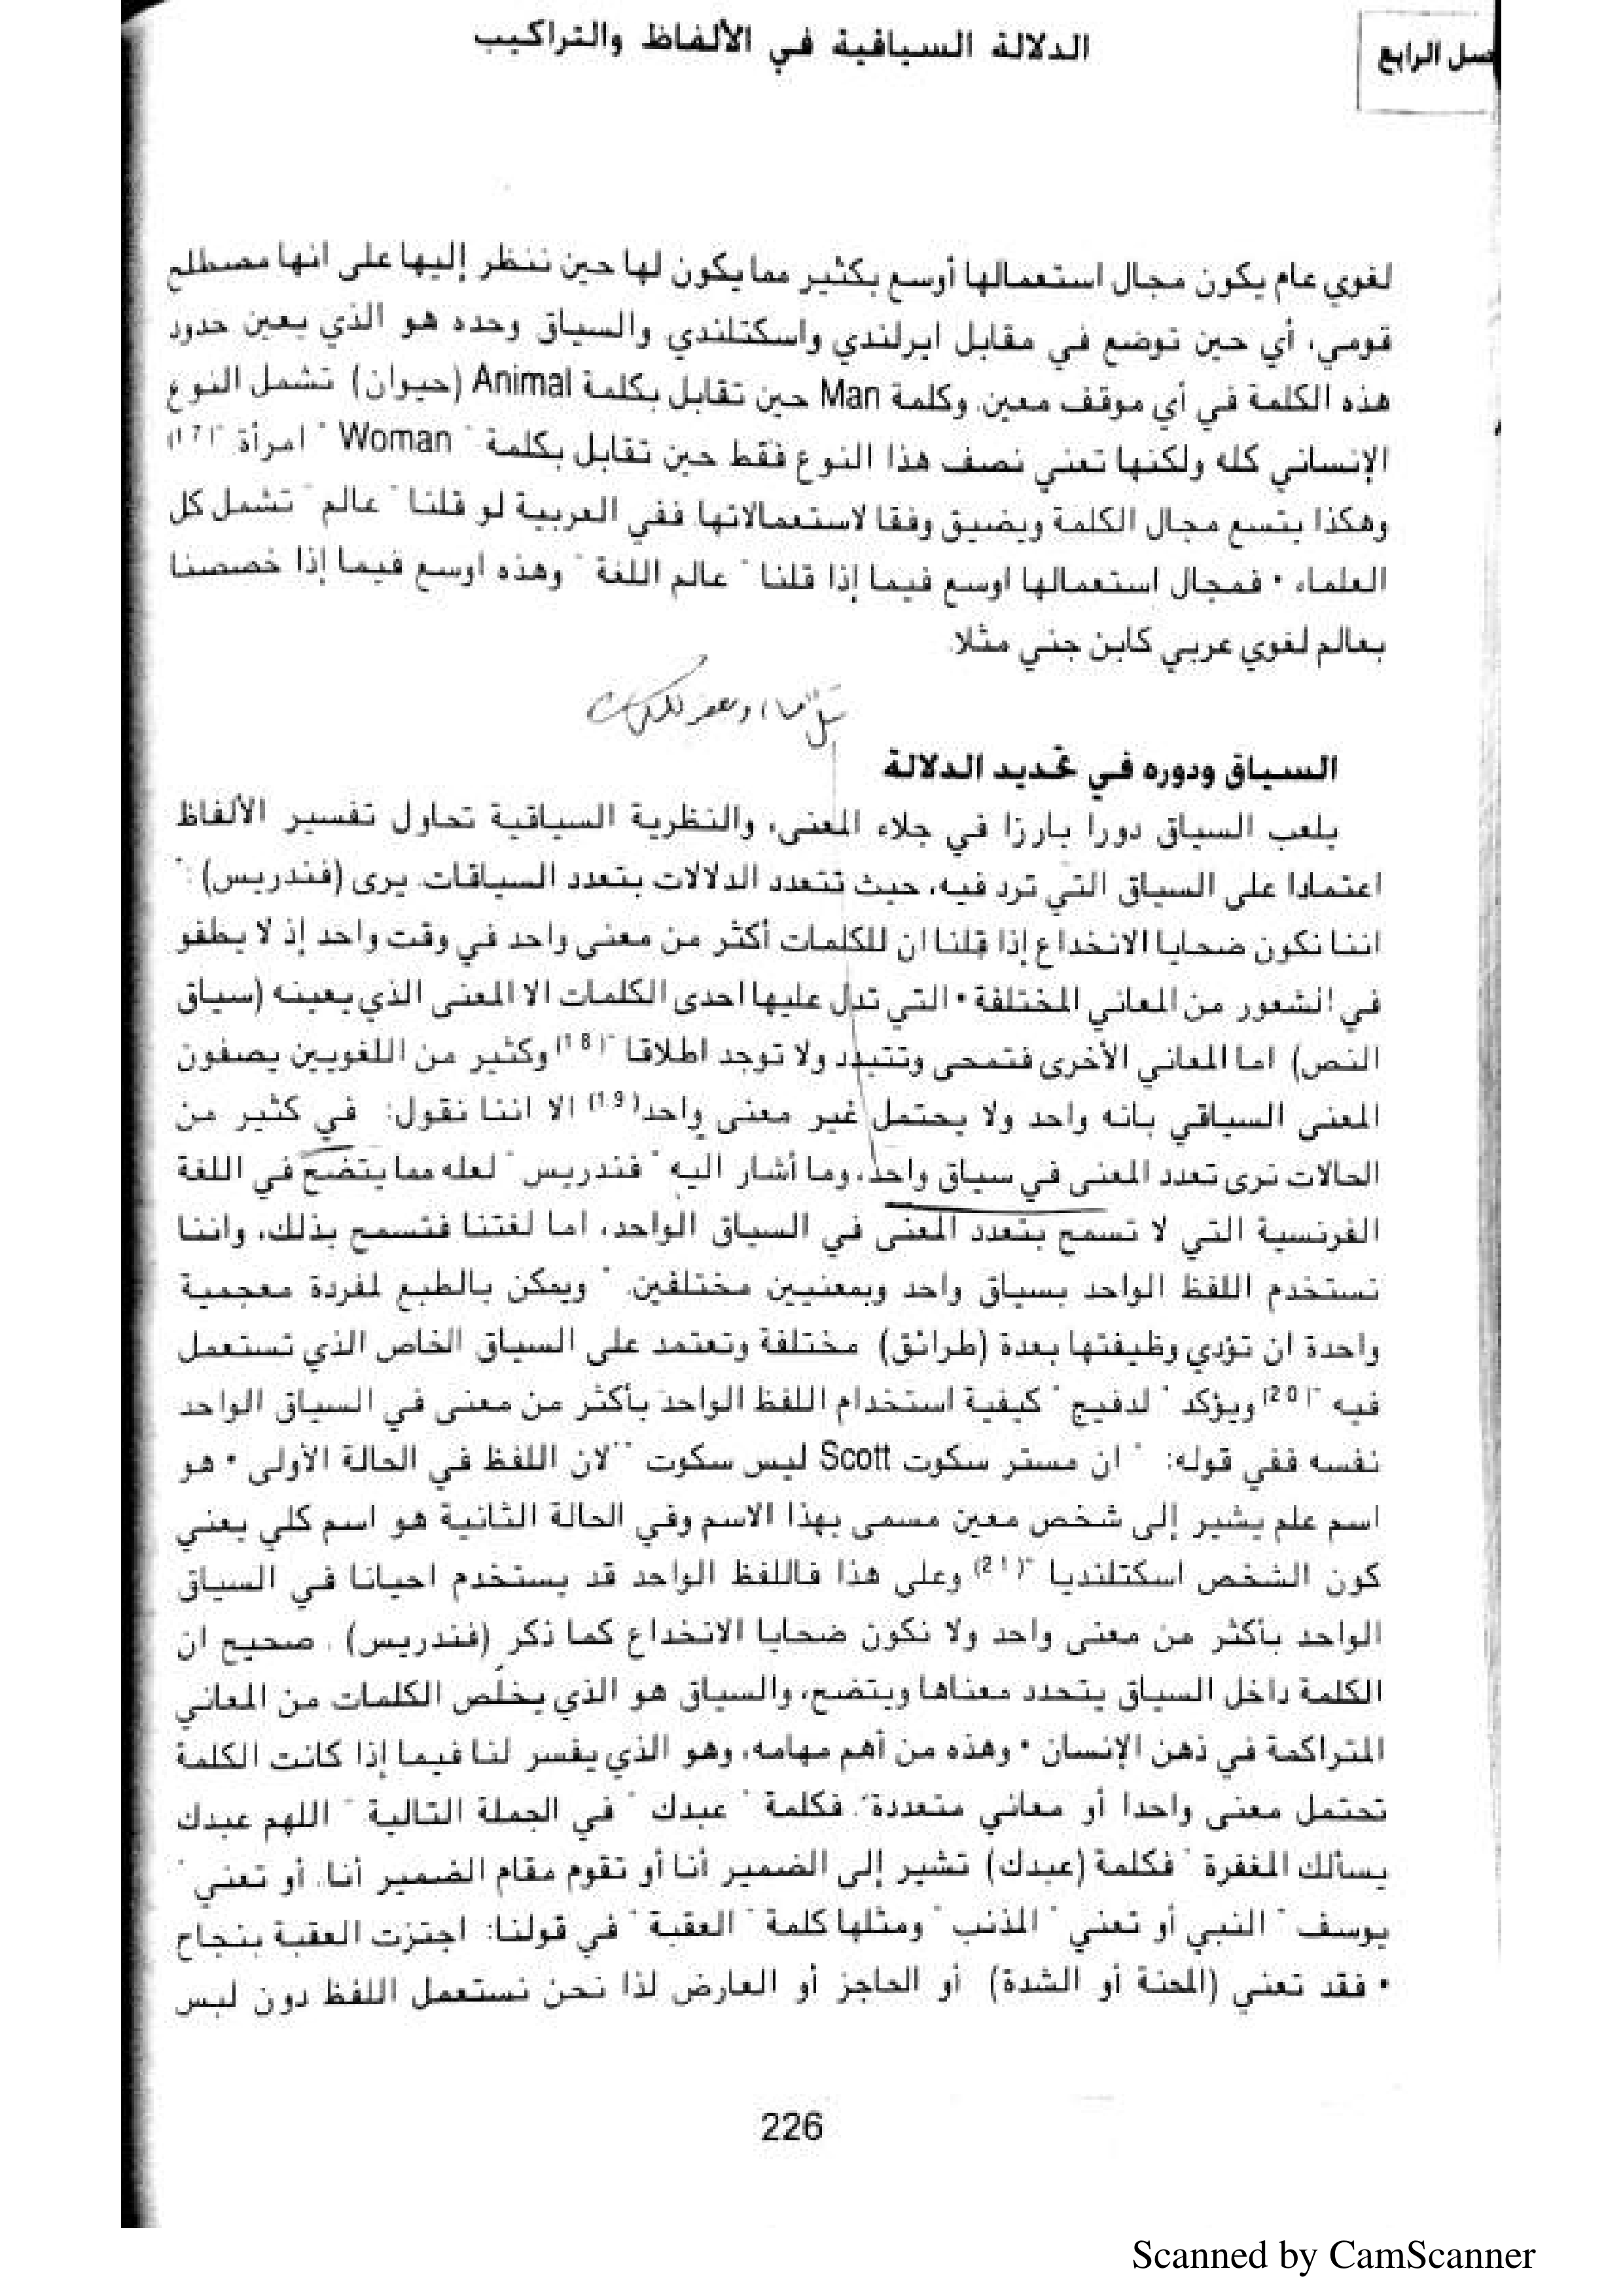 الدلالة السياقية في الألفاظ والتراكيب
صل الرابع
لغوي عام يكون مجال استعمالها أوسع بكثير مما يكون لها حين ننظر إليها على انها مصطلح
قومي، أي حين توضع في مقابل ايرلندي واسكتلندي والسياق وحده هو الذي يعين حدود
هذه الكلمة في أي موقف معين. وكلمة Man حين تقابل بكلمة Animal (حيوان) تشمل النوع
الإنساني كله ولكنها تعني نصف هذا النوع فقط حين تقابل بكلمة " Woman " امرأة "(17)
وهكذا يتسع مجال الكلمة ويضيق وفقا لاستعمالاتها. ففي العربية لو قلنا " عالم " تشمل كل
العلماء • فمجال استعمالها اوسع فيما إذا قلنا " عالم اللغة " وهذه اوسع فيما إذا خصصنا
بعالم لغوي عربي كابن جني مثلا.
السياق ودوره في تحديد الدلالة
يلعب السياق دورا بارزا في جلاء المعنى، والنظرية السياقية تحاول تفسير الألفاظ
اعتمادا على السياق التي ترد فيه، حيث تتعدد الدلالات بتعدد السياقات. يرى (فندريس) : "
اننا نكون ضحايا الانخداع إذا قلنا ان للكلمات أكثر من معنى واحد في وقت واحد إذ لا يطفو
في الشعور من المعاني المختلفة • التي تدل عليها احدى الكلمات الا المعنى الذي يعينه (سياق
النص) اما المعاني الأخرى فتمحى وتتبدد ولا توجد اطلاقا "(18) وكثير من اللغويين يصفون
المعنى السياقي بانه واحد ولا يحتمل غير معنى واحد(19) الا اننا نقول: في كثير من
الحالات نرى تعدد المعنى في سياق واحد، وما أشار اليه " فندريس " لعله مما يتضح في اللغة
الفرنسية التي لا تسمح بتعدد المعنى في السياق الواحد، اما لغتنا فتسمح بذلك، واننا
نستخدم اللفظ الواحد بسياق واحد وبمعنيين مختلفين. " ويمكن بالطبع لمفردة معجمية
واحدة ان تؤدي وظيفتها بعدة (طرائق) مختلفة وتعتمد على السياق الخاص الذي تستعمل
فيه "(20) ويؤكد " لدفيج " كيفية استخدام اللفظ الواحد بأكثر من معنى في السياق الواحد
نفسه ففي قوله: " ان مستر سكوت Scott ليس سكوت "" لان اللفظ في الحالة الأولى • هو
اسم علم يشير إلى شخص معين مسمى بهذا الاسم وفي الحالة الثانية هو اسم كلي يعني
كون الشخص اسكتلنديا "(21) وعلى هذا فاللفظ الواحد قد يستخدم احيانا في السياق
الواحد بأكثر من معنى واحد ولا نكون ضحايا الانخداع كما ذكر (فندريس) . صحيح ان
الكلمة داخل السياق يتحدد معناها ويتضح، والسياق هو الذي يخلّص الكلمات من المعاني
المتراكمة في ذهن الإنسان • وهذه من أهم مهامه، وهو الذي يفسر لنا فيما إذا كانت الكلمة
تحتمل معنى واحدا أو معاني متعددة". فكلمة " عبدك " في الجملة التالية " اللهم عبدك
يسألك المغفرة " فكلمة (عبدك) تشير إلى الضمير أنا أو تقوم مقام الضمير أنا. أو تعني "
يوسف " النبي أو تعني " المذنب " ومثلها كلمة " العقبة " في قولنا: اجتزت العقبة بنجاح
• فقد تعني (المحنة أو الشدة) أو الحاجز أو العارض لذا نحن نستعمل اللفظ دون لبس
226
Scanned by CamScanner